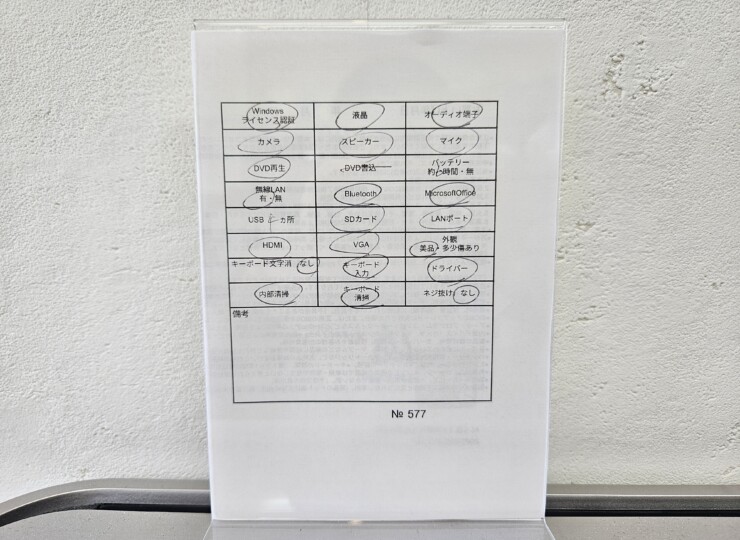 Windows
ライセンス認証
液晶
オーディオ端子
カメラ
スピーカー
マイク
DVD再生
DVD書込
バッテリー
約 時間・無
無線LAN
有・無
Bluetooth
MicrosoftOffice
USB 4 ヵ所
SDカード
LANポート
HDMI
VGA
外観
美品・多少傷あり
キーボード文字消 なし
キーボード
入力
ドライバー
内部清掃
キーボード
清掃
ネジ抜け なし
備考
№ 577